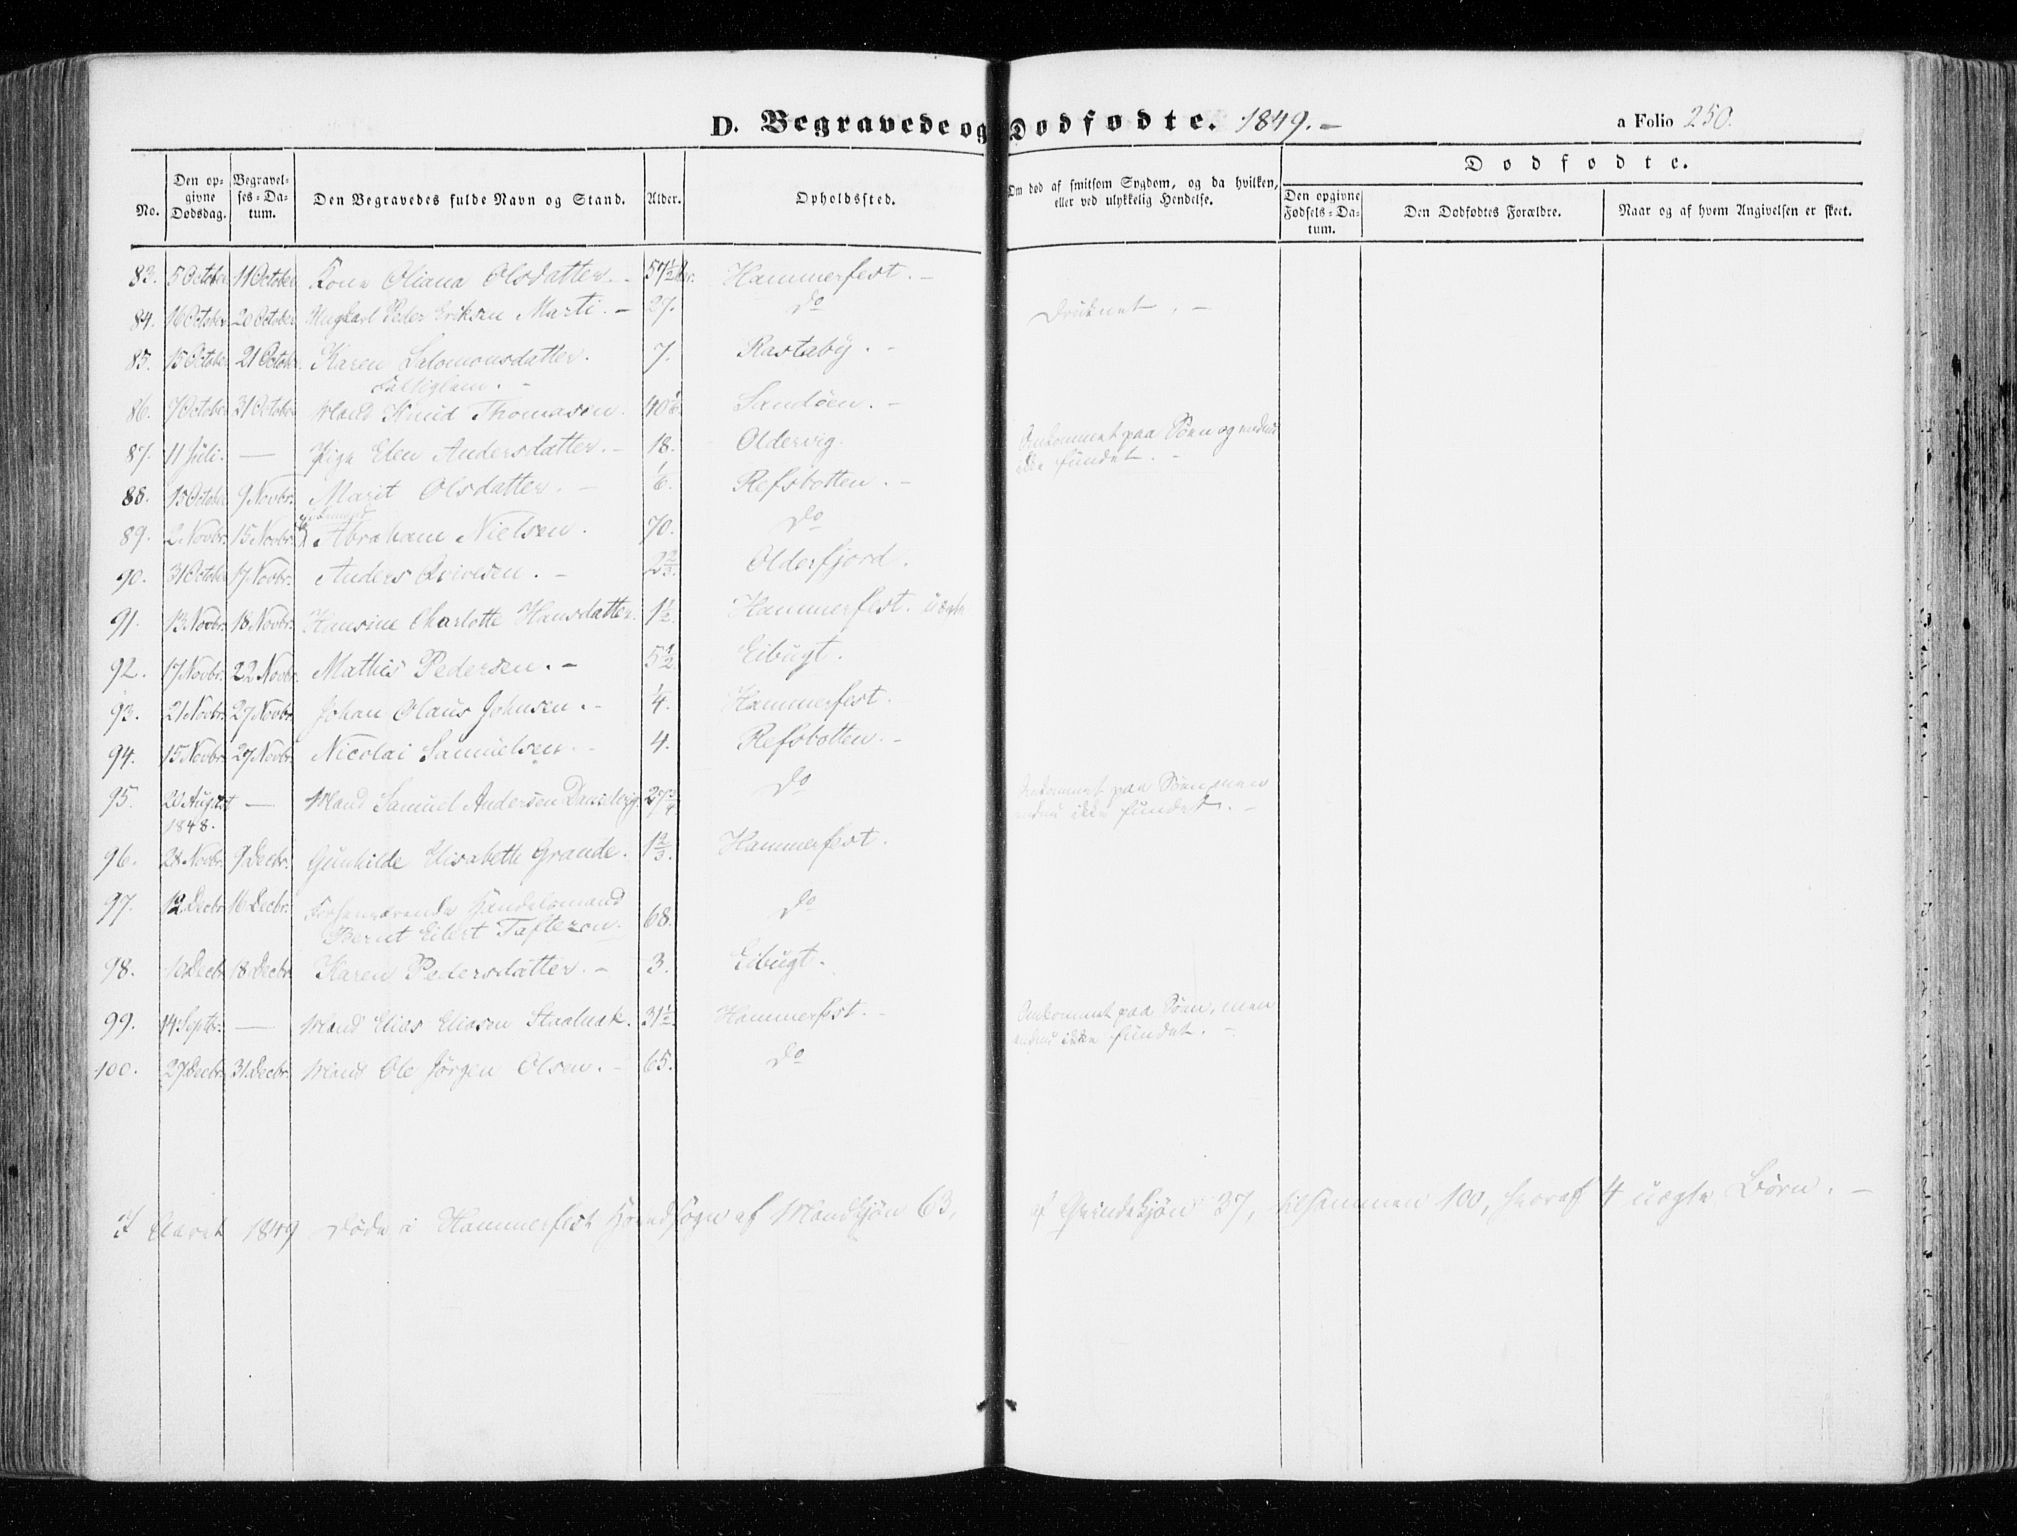 D. Begravede og Dødfødte. 1849.- a Folio 250.
No. Den opgivne Dødsdag. Begravelses-Datum. Den Begravedes fulde Navn og Stand. Alder. Opholdssted. Om død af smitsom Sygdom, og da hvilken, eller ved ulykkelig Hendelse. Dødfødte. Den opgivne Fødsels-Datum. Den Dødfødtes Forældre. Naar og af hvem Angivelsen er skeet.
83. 5 October 11 October Kone Oliana Olsdatter. - 57½ Hammerfest. -
84. 16 October 20 October Ungkarl Peder Eriksen Marti. - 27. do Druknet. -
85. 15 October 21 October Karen Salomonsdatter. 7. Rastaby. -
86. 7 October 31 October Mand Knud Thomasen. Sandøen. -
87. 11 Juli. — Pige Elen Andersdatter. - 18. Oldervig. Omkommet paa Søen og endnu
ikke fundet. -
88. 15 October 9 Novbr. Marit Olsdatter. - 1/6. Refsbotten. -
89. 2 Novbr. 15 Novbr. Abraham Nielsen. 70. do
90. 31 October 17 Novbr. Anders - 2⅔. Olderfjord.
91. 13 Novbr. 18 Novbr. Hansine Charlotte Hansdatter. 1½. Hammerfest. uægte
92. 17 Novbr. 22 Novbr. Mathis Pedersen. - 5½. Eibugt.
93. 21 Novbr. 27 Novbr. Johan Olaus Johnsen. - ¼. Hammerfest.
94. 15 Novbr. 27 Novbr. Nicolai Samuelsen. - 4. Refsbotten. -
95. 20 August — Mand Samuel Andersen 27¾ do Omkommet paa Søen, men
1848. endnu ikke fundet. -
96. 28 Novbr. 9 Decbr. Gunhilde Elisabeth Grande. 1⅔. Hammerfest.
97. 12 Decbr. 16 Decbr. Forhenværende Handelsmand do
Bernt Eilert Taftezon. 68.
98. 10 Decbr. 18 Decbr. Karen Pedersdatter. - 3. Eibugt.
99. 14 Septbr. — Mand Elias Eliasen Staalnak. 31½. Hammerfest. - Omkommet paa Søen, men
endnu ikke fundet. -
100. 27 Decbr. 31 Decbr. Mand Ole Jørgen Olsen. - 65. do
I Aaret 1849 døde i Hammerfest Hovedsogn af Mandkjøn 63, af Qvindekjøn 37, tilsammen 100, hvoraf 4 uægte Børn. -